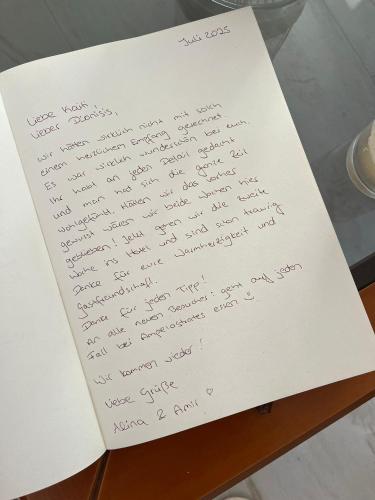 Juli 2025
Liebe Kaiti,
Lieber Dionisis,
wir hätten wirklich nicht mit solch
einem herzlichen Empfang gerechnet.
Es war wirklich wunderschön bei euch.
Ihr habt an jeden Detail gedacht
und man hat sich die ganze Zeit
wohlgefühlt. Hätten wir das vorher
gewusst wären wir beide Wochen hier
geblieben! Jetzt gehen wir die zweite
Woche ins Hotel und sind schon traurig
Danke für eure Warmherzigkeit und
Gastfreundschaft.
Danke für jeden Tipp!
An alle neuen Besucher: geht auf jeden
Fall bei Ampelostrates essen :)
Wir kommen wieder!
Liebe Grüße
Alina & Amir ♡